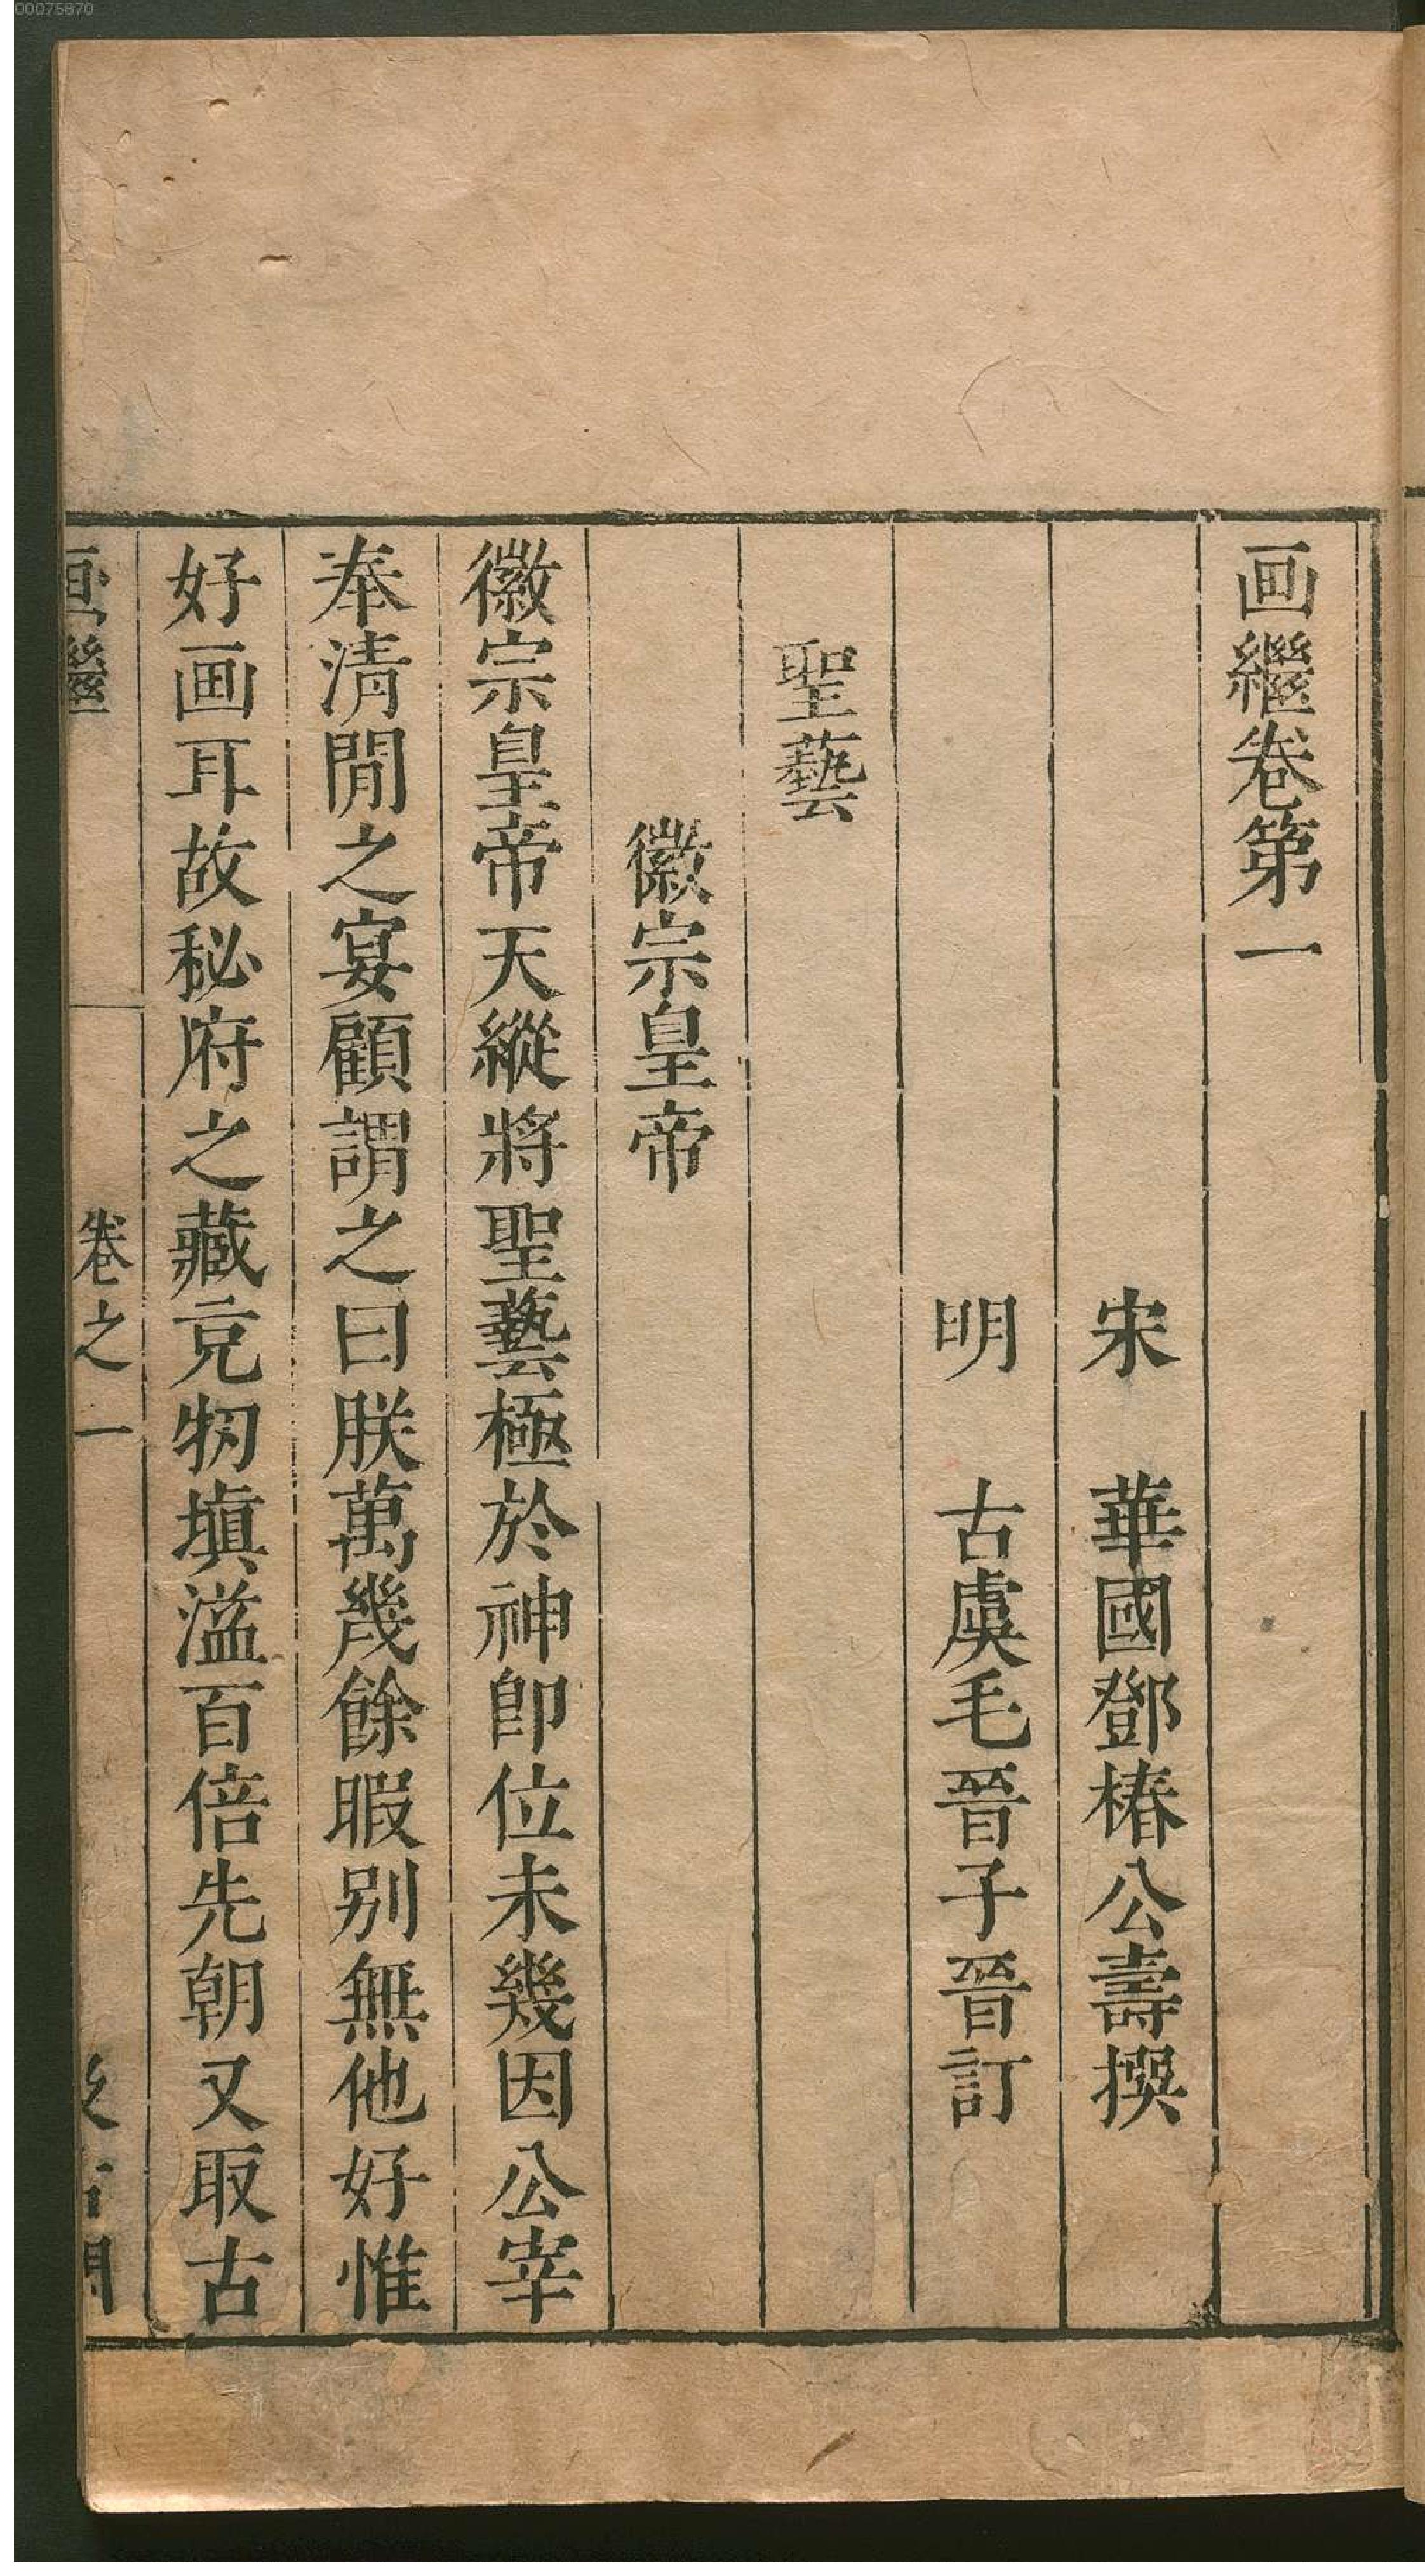 00075870
画繼卷第一
宋 華國鄧椿公壽撰
明 古虞毛晉子晉訂
聖藝
徽宗皇帝
徽宗皇帝天縱將聖藝極於神卽位未幾因公宰
奉清閒之宴顧謂之曰朕萬幾餘暇别無他好惟
好画耳故秘府之藏充牣塡溢百倍先朝又取古
画繼 卷之一 汲古閣